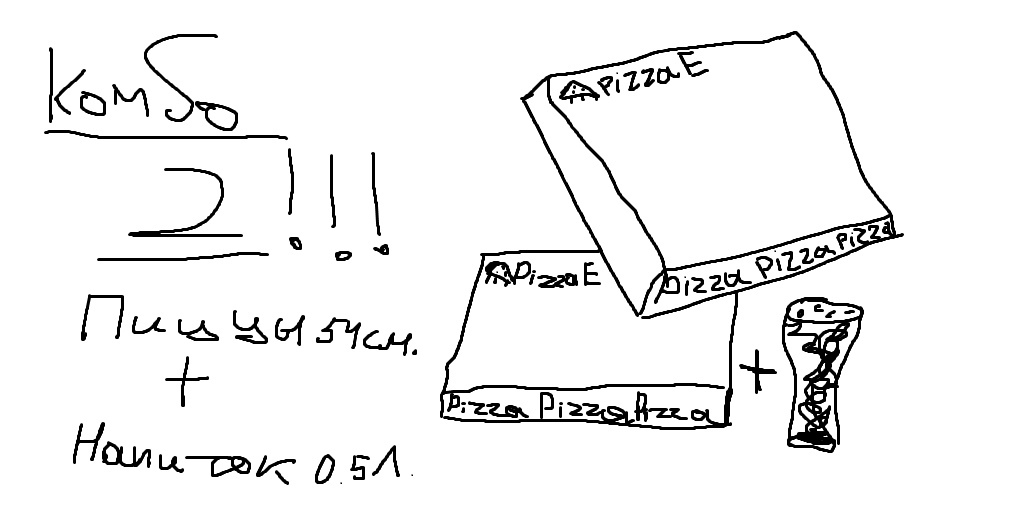 Комбо
2!!!
Пиццы 54см.
+
Напиток 0.5Л.
PizzaE
Pizza Pizza Pizza
PizzaE
Pizza Pizza Pizza
+